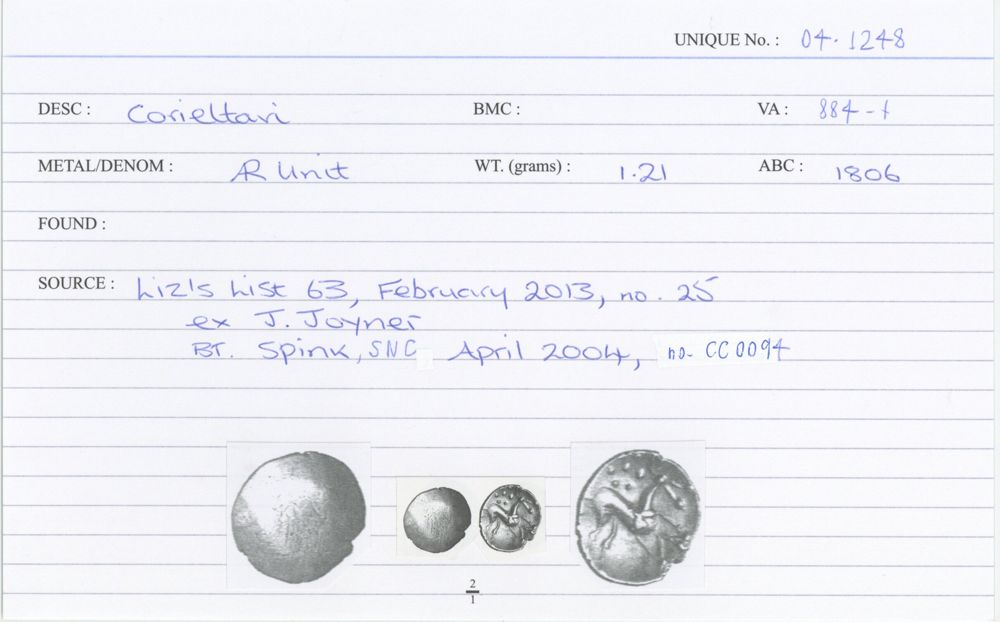 UNIQUE No. : 04.1248
DESC : Corieltavi BMC : VA : 884-1
METAL/DENOM : AR Unit WT. (grams) : 1.21 ABC : 1806
FOUND :
SOURCE : Liz's List 63, February 2013, no. 25
ex J. Joyner
BT. Spink, SNC April 2004, no. CC0094
2
1